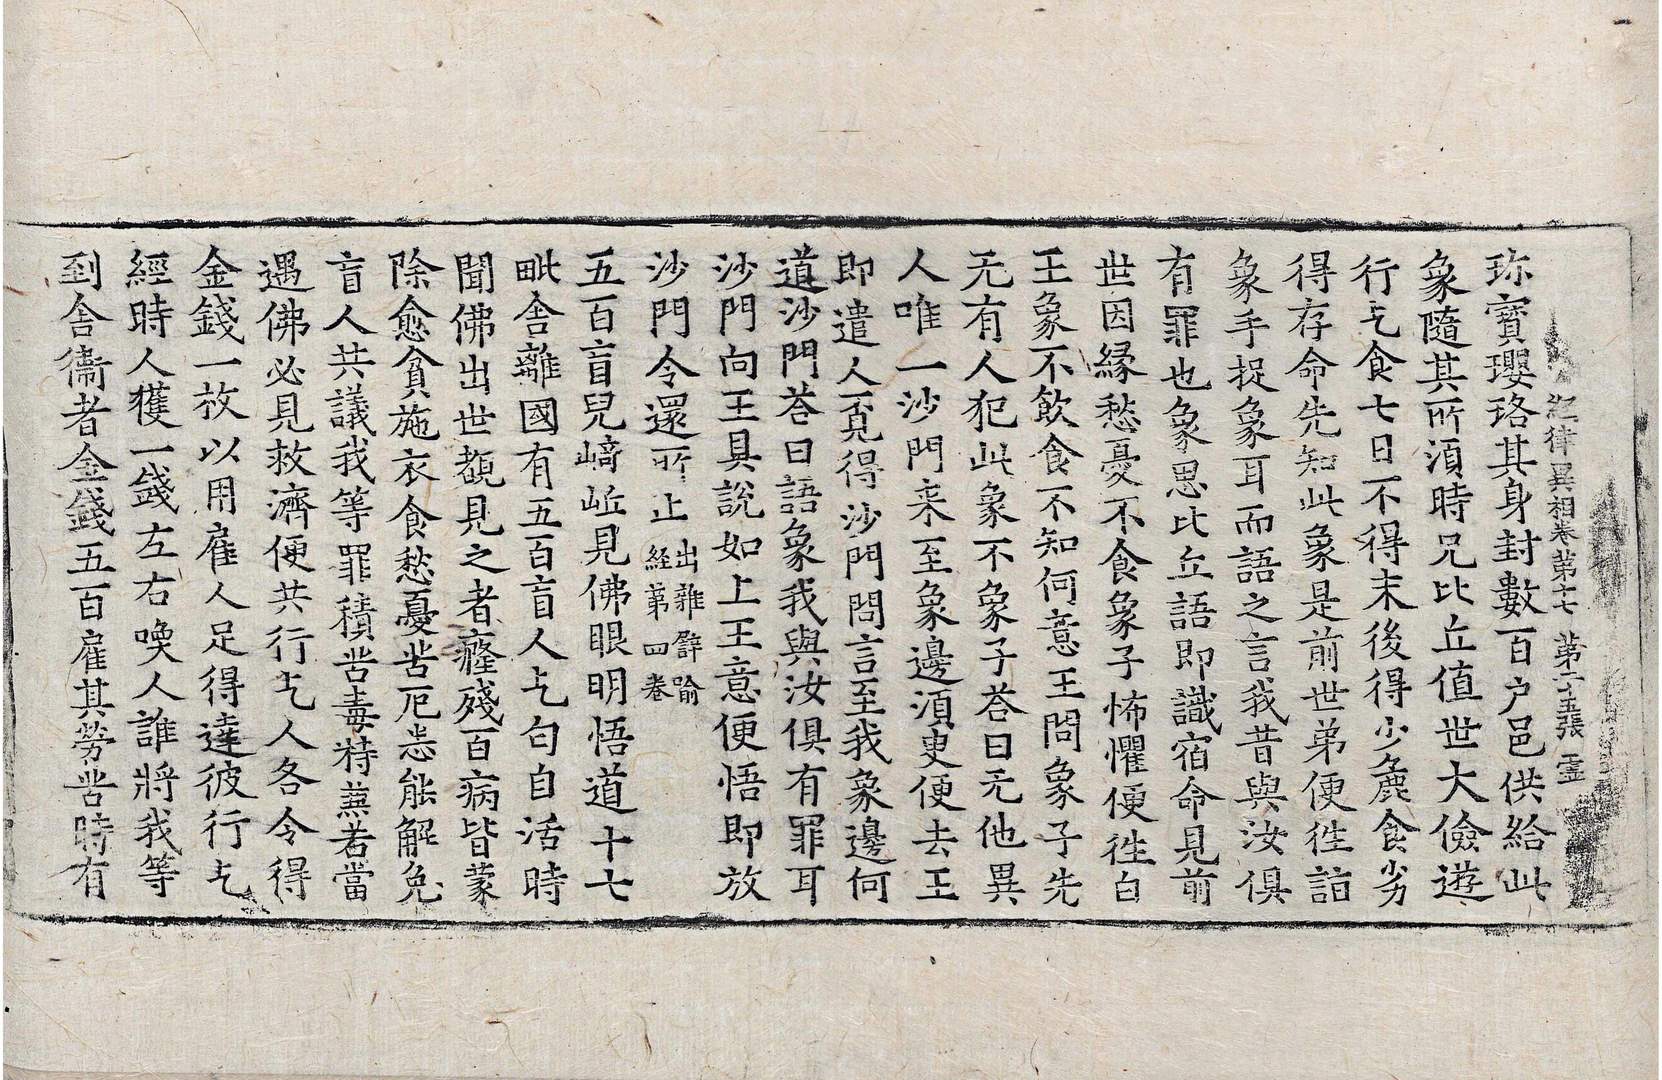 經律異相卷第十七 第二十五張 靈
珎寶瓔珞其身封數百户邑供給此
象隨其所湏時兄比丘值世大儉遊
行乞食七日不得末後得少麁食劣
得存命先知此象是前世弟便徃詣
象手捉象耳而語之言我昔與汝俱
有罪也象思比丘語即識宿命見前
世因縁愁憂不食象子怖懼便徃白
王象不飲食不知何意王問象子先
无有人犯此象不象子荅曰无他異
人唯一沙門来至象邊湏臾便去王
即遣人覓得沙門問言至我象邊何
道沙門荅曰語象我與汝俱有罪耳
沙門向王具說如上王意便悟即放
沙門令還所止 出雜譬喻經第四卷
五百盲兒﨑嶇見佛眼明悟道十七
毗舍離國有五百盲人乞匂自活時
聞佛出世覩見之者癃殘百病皆蒙
除愈貧施衣食愁憂苦厄悉能解免
盲人共議我等罪積苦毒特兼若當
遇佛必見救濟便共行乞人各令得
金錢一枚以用雇人足得達彼行乞
經時人獲一錢左右喚人誰將我等
到舍衞者金錢五百雇其勞苦時有